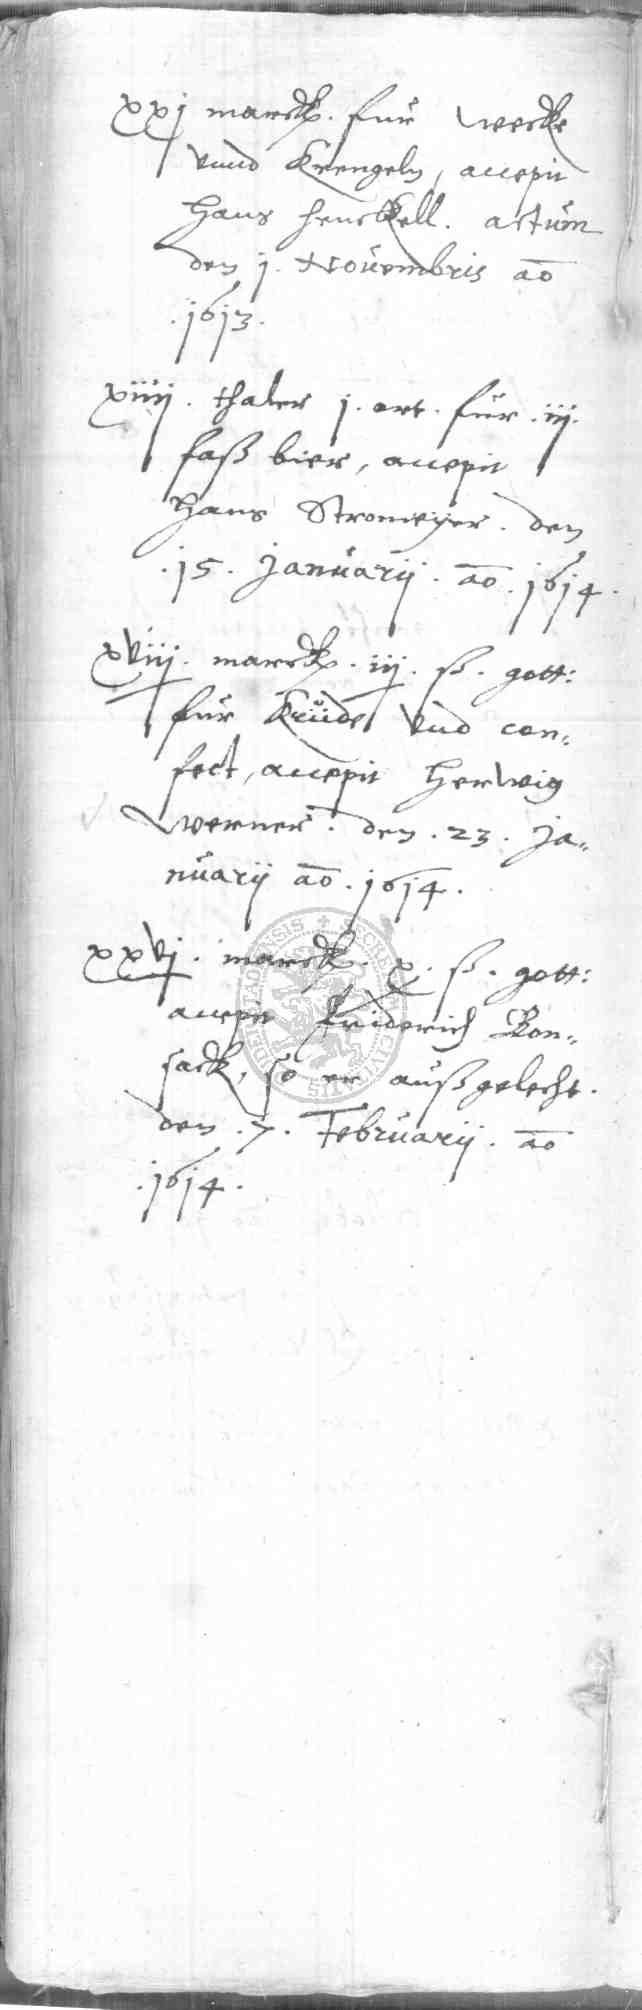 xxj marck. für Wecke
vnnd Krengeln, accepit
Hans Henckell. actum
den j. Novembris ao
.1613.
xiiij. thaler j. ort. für .iij.
faß bier, accepit
Hans Stromeyer. den
.15. Januarij. ao. 1614.
xviij. marck. iij. ß. gott:
für Krüde vnd con„
fect, accepit Herwig
Werner. den. 23. Ja„
nuarij ao. 1614.
xxvj. marck. x. ß. gott:
accepit Friderich Bon„
sack, so er außgelecht.
den .7. Februarij. ao
.1614.